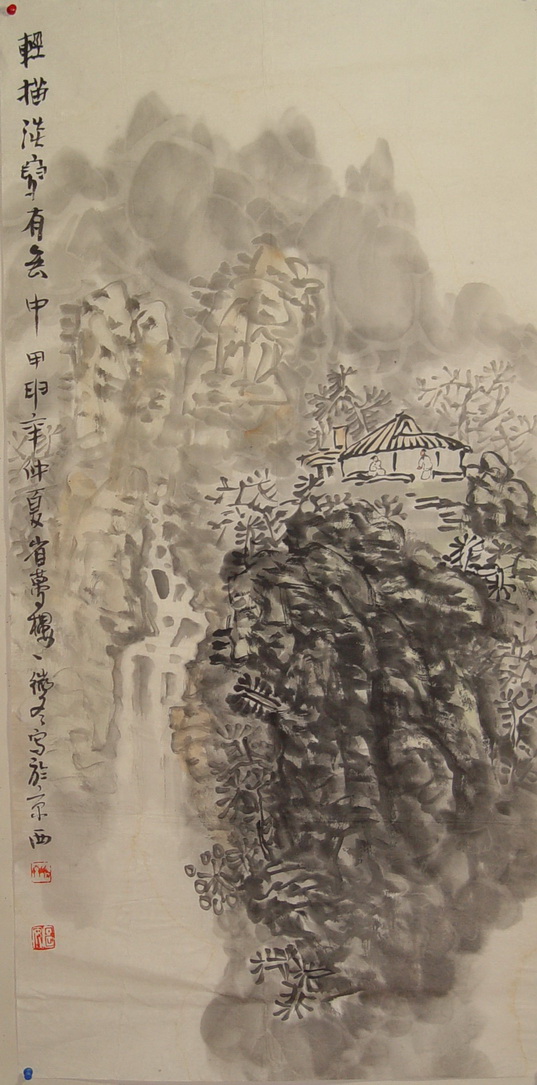 輕描淡寫有無中甲申年仲夏省夢樓寫於京西